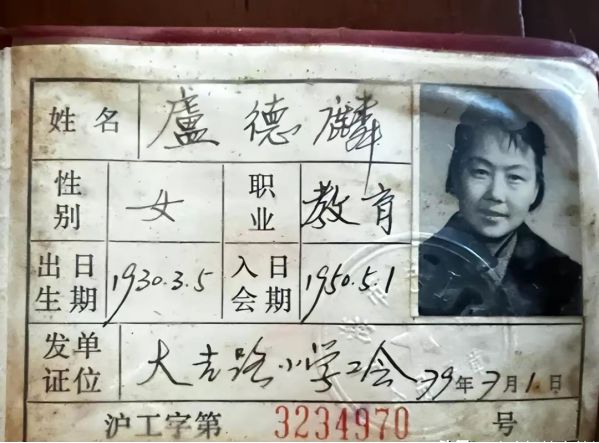 姓名 盧德麟
性别 女 职业 教育
出生日期 1930.3.5 入会日期 1950.5.1
发证单位 大吉路小学工会 79年7月1日
沪工字第 3234970 号